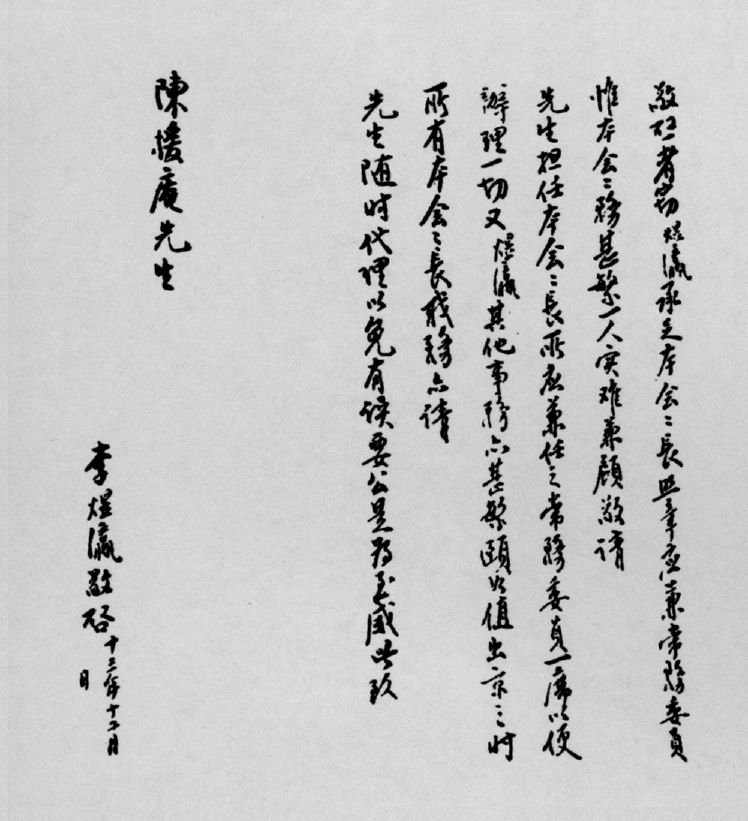 敬啓者窃煜瀛承乏本会〻長照章应兼常務委員
惟本会〻務甚繁一人实难兼顾敬請
先生担任本会〻長所应兼任之常務委員一席以便
辦理一切又煜瀛其他事務亦甚繁頤如值出京之时
所有本会〻長职務亦請
先生随时代理以免有误要公是为至感此致
陳援庵先生
李煜瀛敬啓
十三年十二月
日